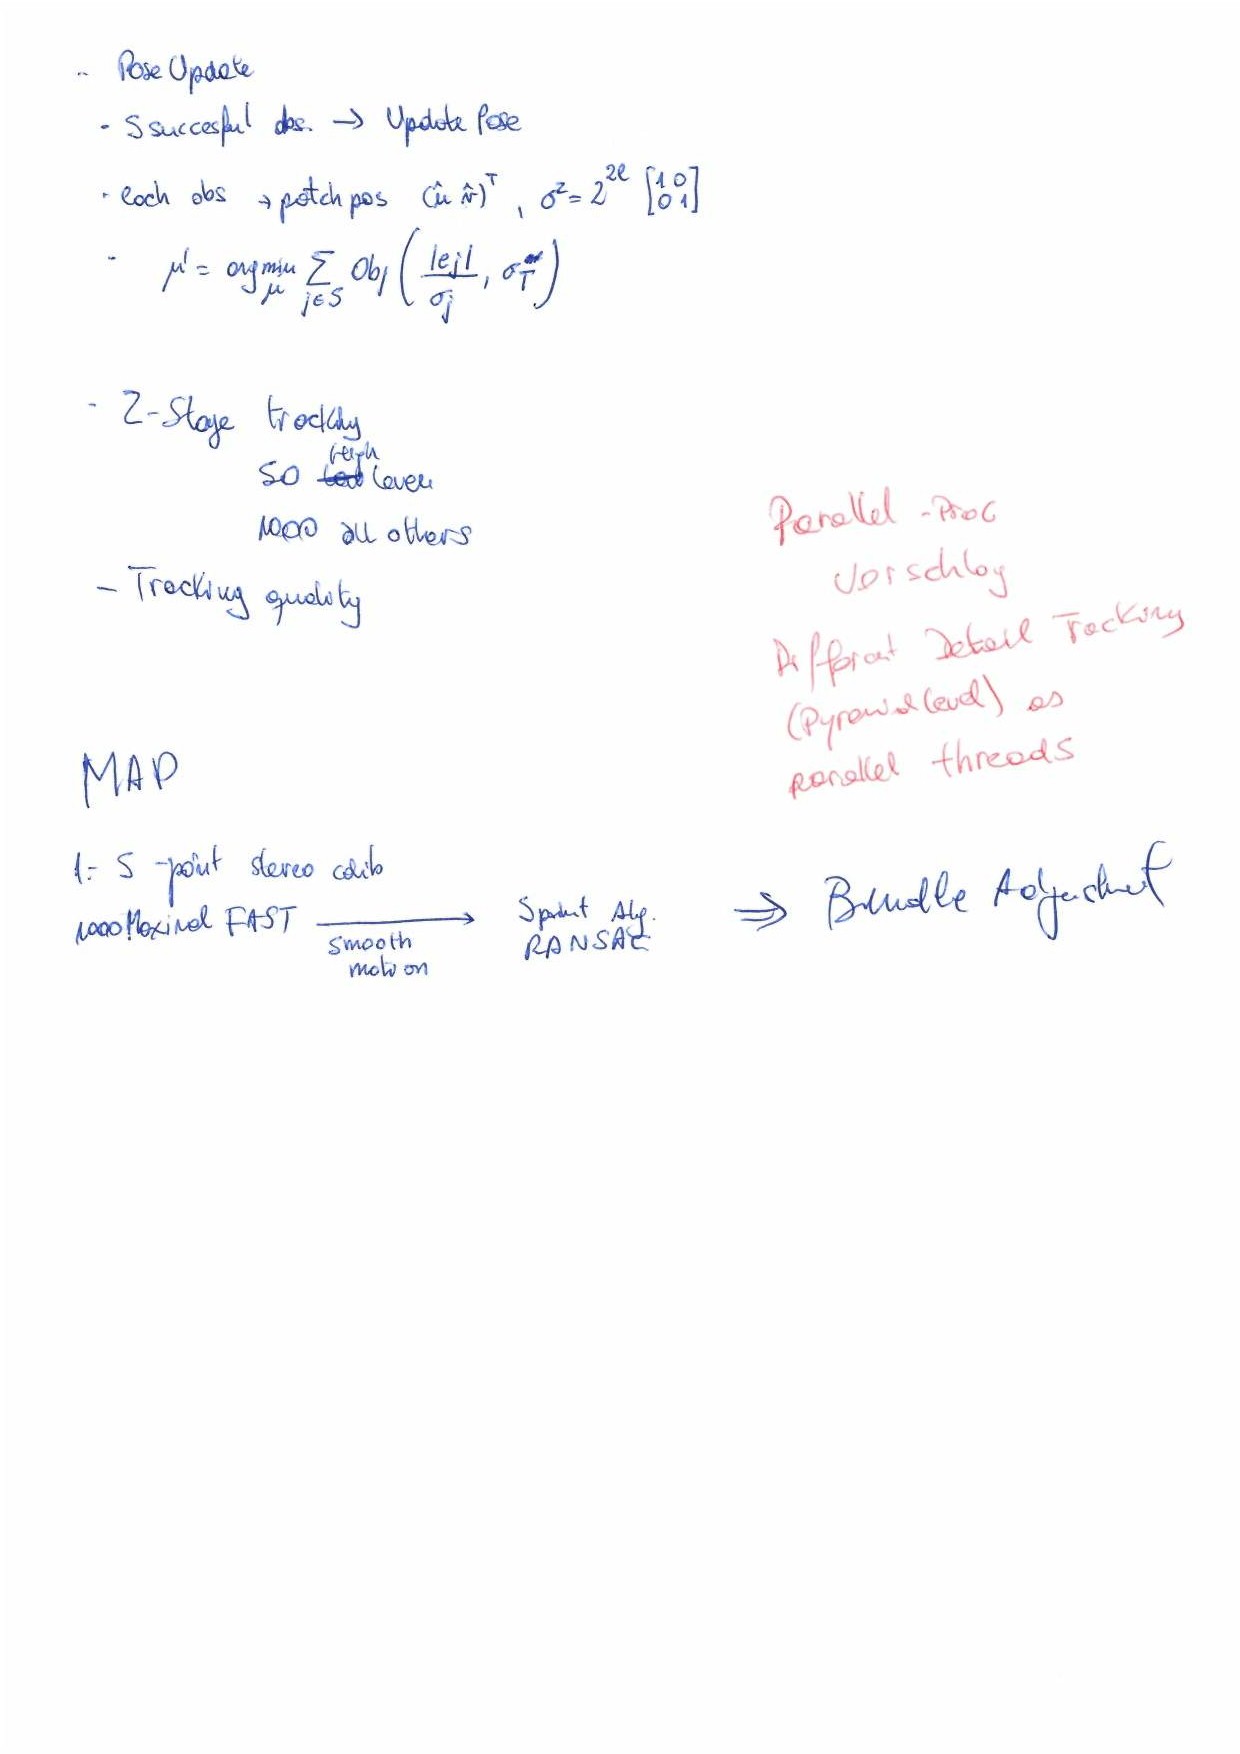 - Pose Update
- S succesful obs. → Update Pose
- each obs → patch pos (û v̂)ᵀ, σ² = 2²ˡ [1 0; 0 1]
- μ' = argmin_μ Σ_{j∈S} Obj ( |ej| / σj , σT )
- 2-Stage tracking
high
50 level
1000 all others
- Tracking quality
Parallel - Proc
Vorschlag
Different Detail Tracking
(Pyramid level) as
parallel threads
MAP
1- 5-point stereo calib
1000 Maximal FAST → smooth motion → 5point Alg. RANSAC ⇒ Bundle Adjustment